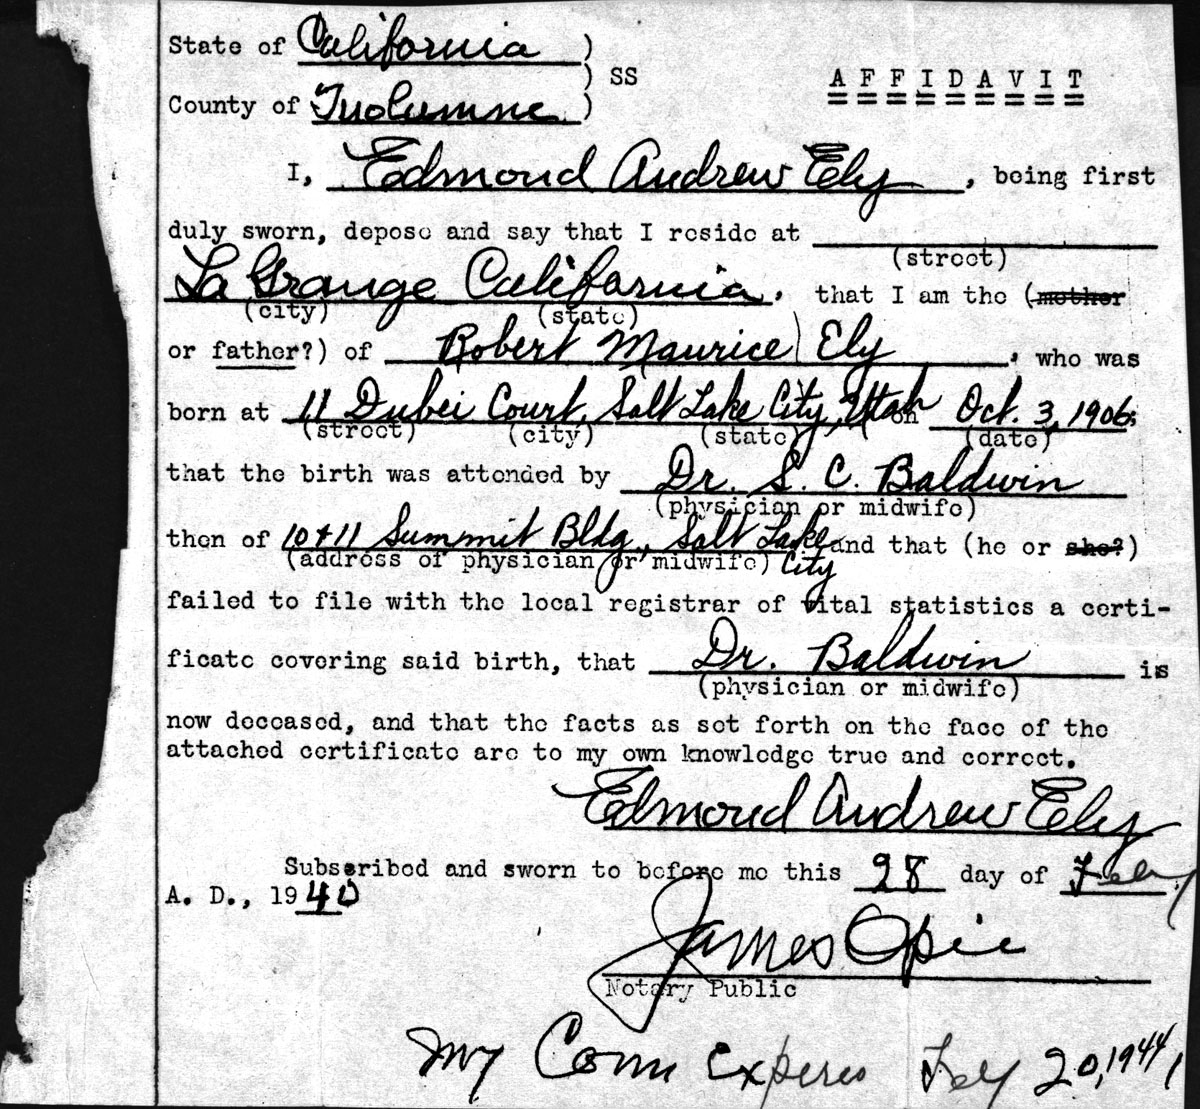 State of California )
) SS
A F F I D A V I T
County of Tuolumne )
I, Edmond Andrew Ely, being first
duly sworn, depose and say that I reside at
(street)
La Grange California, that I am the (mother
(city) (state)
or father?) of Robert Maurice Ely, who was
born at 11 Dubei Court, Salt Lake City, Utah on Oct. 3, 1906;
(street) (city) (state) (date)
that the birth was attended by Dr. S. C. Baldwin
(physician or midwife)
then of 10 + 11 Summit Bldg., Salt Lake and that (he or she?)
(address of physician or midwife) City
failed to file with the local registrar of vital statistics a certi-
ficate covering said birth, that Dr. Baldwin is
(physician or midwife)
now deceased, and that the facts as set forth on the face of the
attached certificate are to my own knowledge true and correct.
Edmond Andrew Ely
Subscribed and sworn to before me this 28 day of Feby
A. D., 1940
James Opie
Notary Public
My Comm Experes Feby 20, 1944